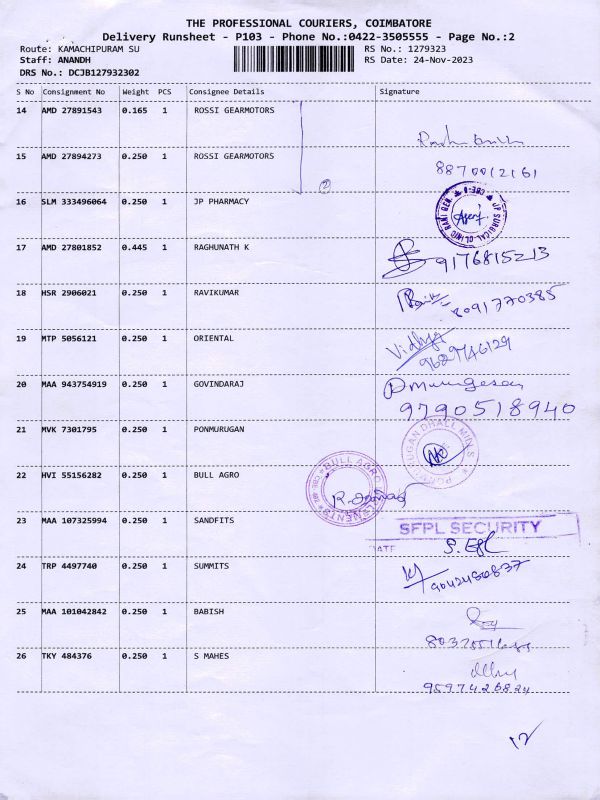 THE PROFESSIONAL COURIERS, COIMBATORE
Delivery Runsheet - P103 - Phone No.:0422-3505555 - Page No.:2
Route: KAMACHIPURAM SU RS No.: 1279323
Staff: ANANDH RS Date: 24-Nov-2023
DRS No.: DCJB127932302
S No Consignment No Weight PCS Consignee Details Signature
14 AMD 27891543 0.165 1 ROSSI GEARMOTORS
15 AMD 27894273 0.250 1 ROSSI GEARMOTORS
8870012161
2
16 SLM 333496064 0.250 1 JP PHARMACY
JP SURGICAL CLINIC
17 AMD 27801852 0.445 1 RAGHUNATH K
9176815213
18 HSR 2906021 0.250 1 RAVIKUMAR
8091770385
19 MTP 5056121 0.250 1 ORIENTAL
Vidhya
20 MAA 943754919 0.250 1 GOVINDARAJ
9790518940
21 MVK 7301795 0.250 1 PONMURUGAN
22 HVI 55156282 0.250 1 BULL AGRO
BULL AGRO
23 MAA 107325994 0.250 1 SANDFITS
SFPL SECURITY
24 TRP 4497740 0.250 1 SUMMITS
25 MAA 101042842 0.250 1 BABISH
26 TKY 484376 0.250 1 S MAHES
12